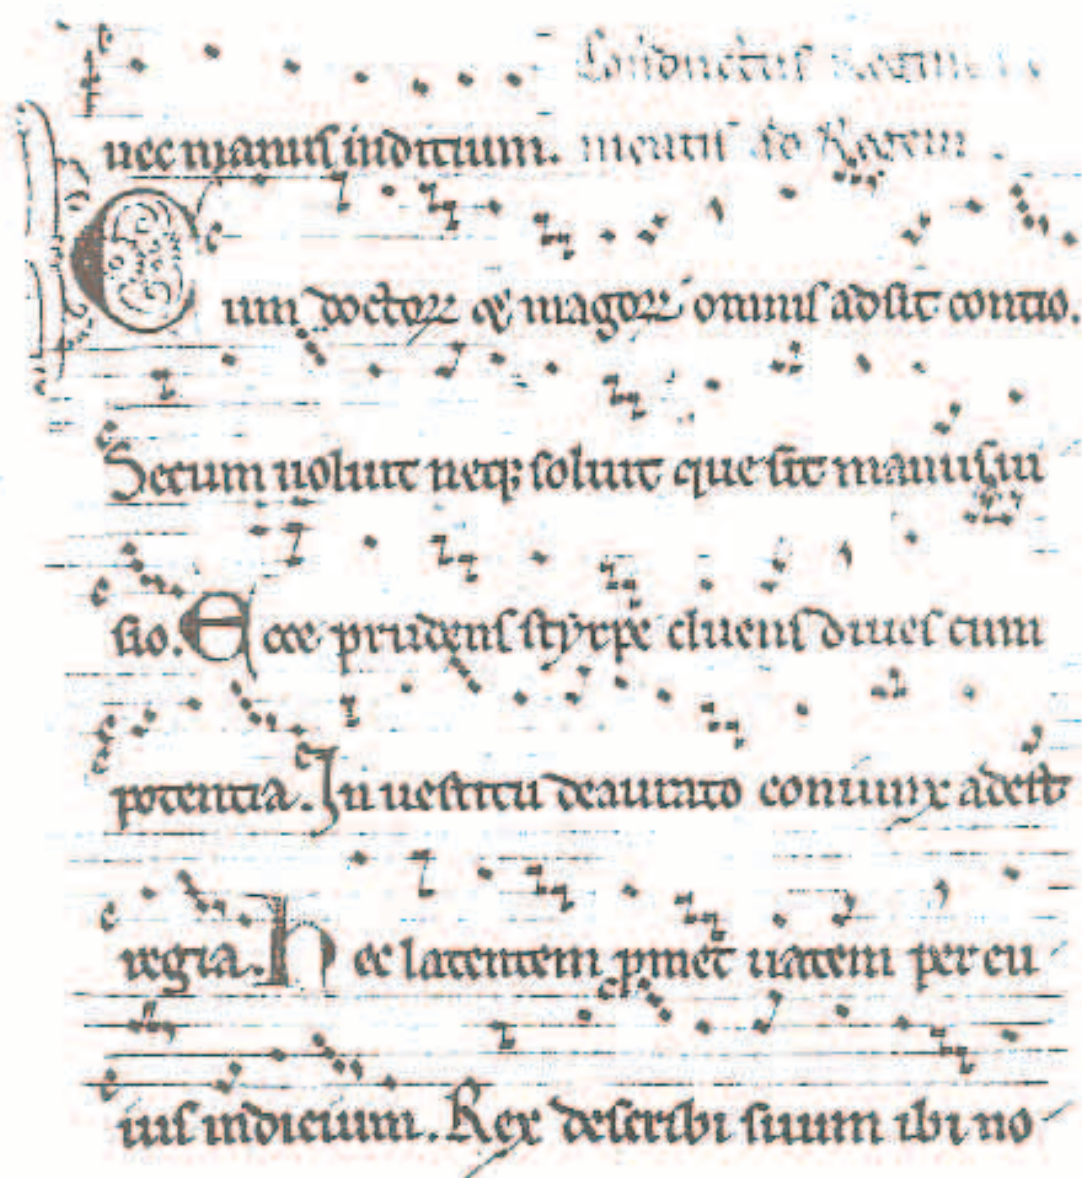 nec manus indicium. Conductus Regine
uenientis ad Regem
Cum doctoꝝ ⁊ magoꝝ omnis adsit contio.
Secum uoluit neqꝫ soluit que sit manus ui
sio. Ecce prudens styrpe cluens diues cum
potentia. In uestitu deaurato coniunx adest
regia. Hec latentem ꝓmet uatem per cu
ius indicium. Rex describi suum ibi no